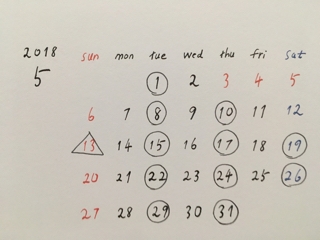 2018
5
sun mon tue wed thu fri sat
1 2 3 4 5
6 7 8 9 10 11 12
13 14 15 16 17 18 19
20 21 22 23 24 25 26
27 28 29 30 31